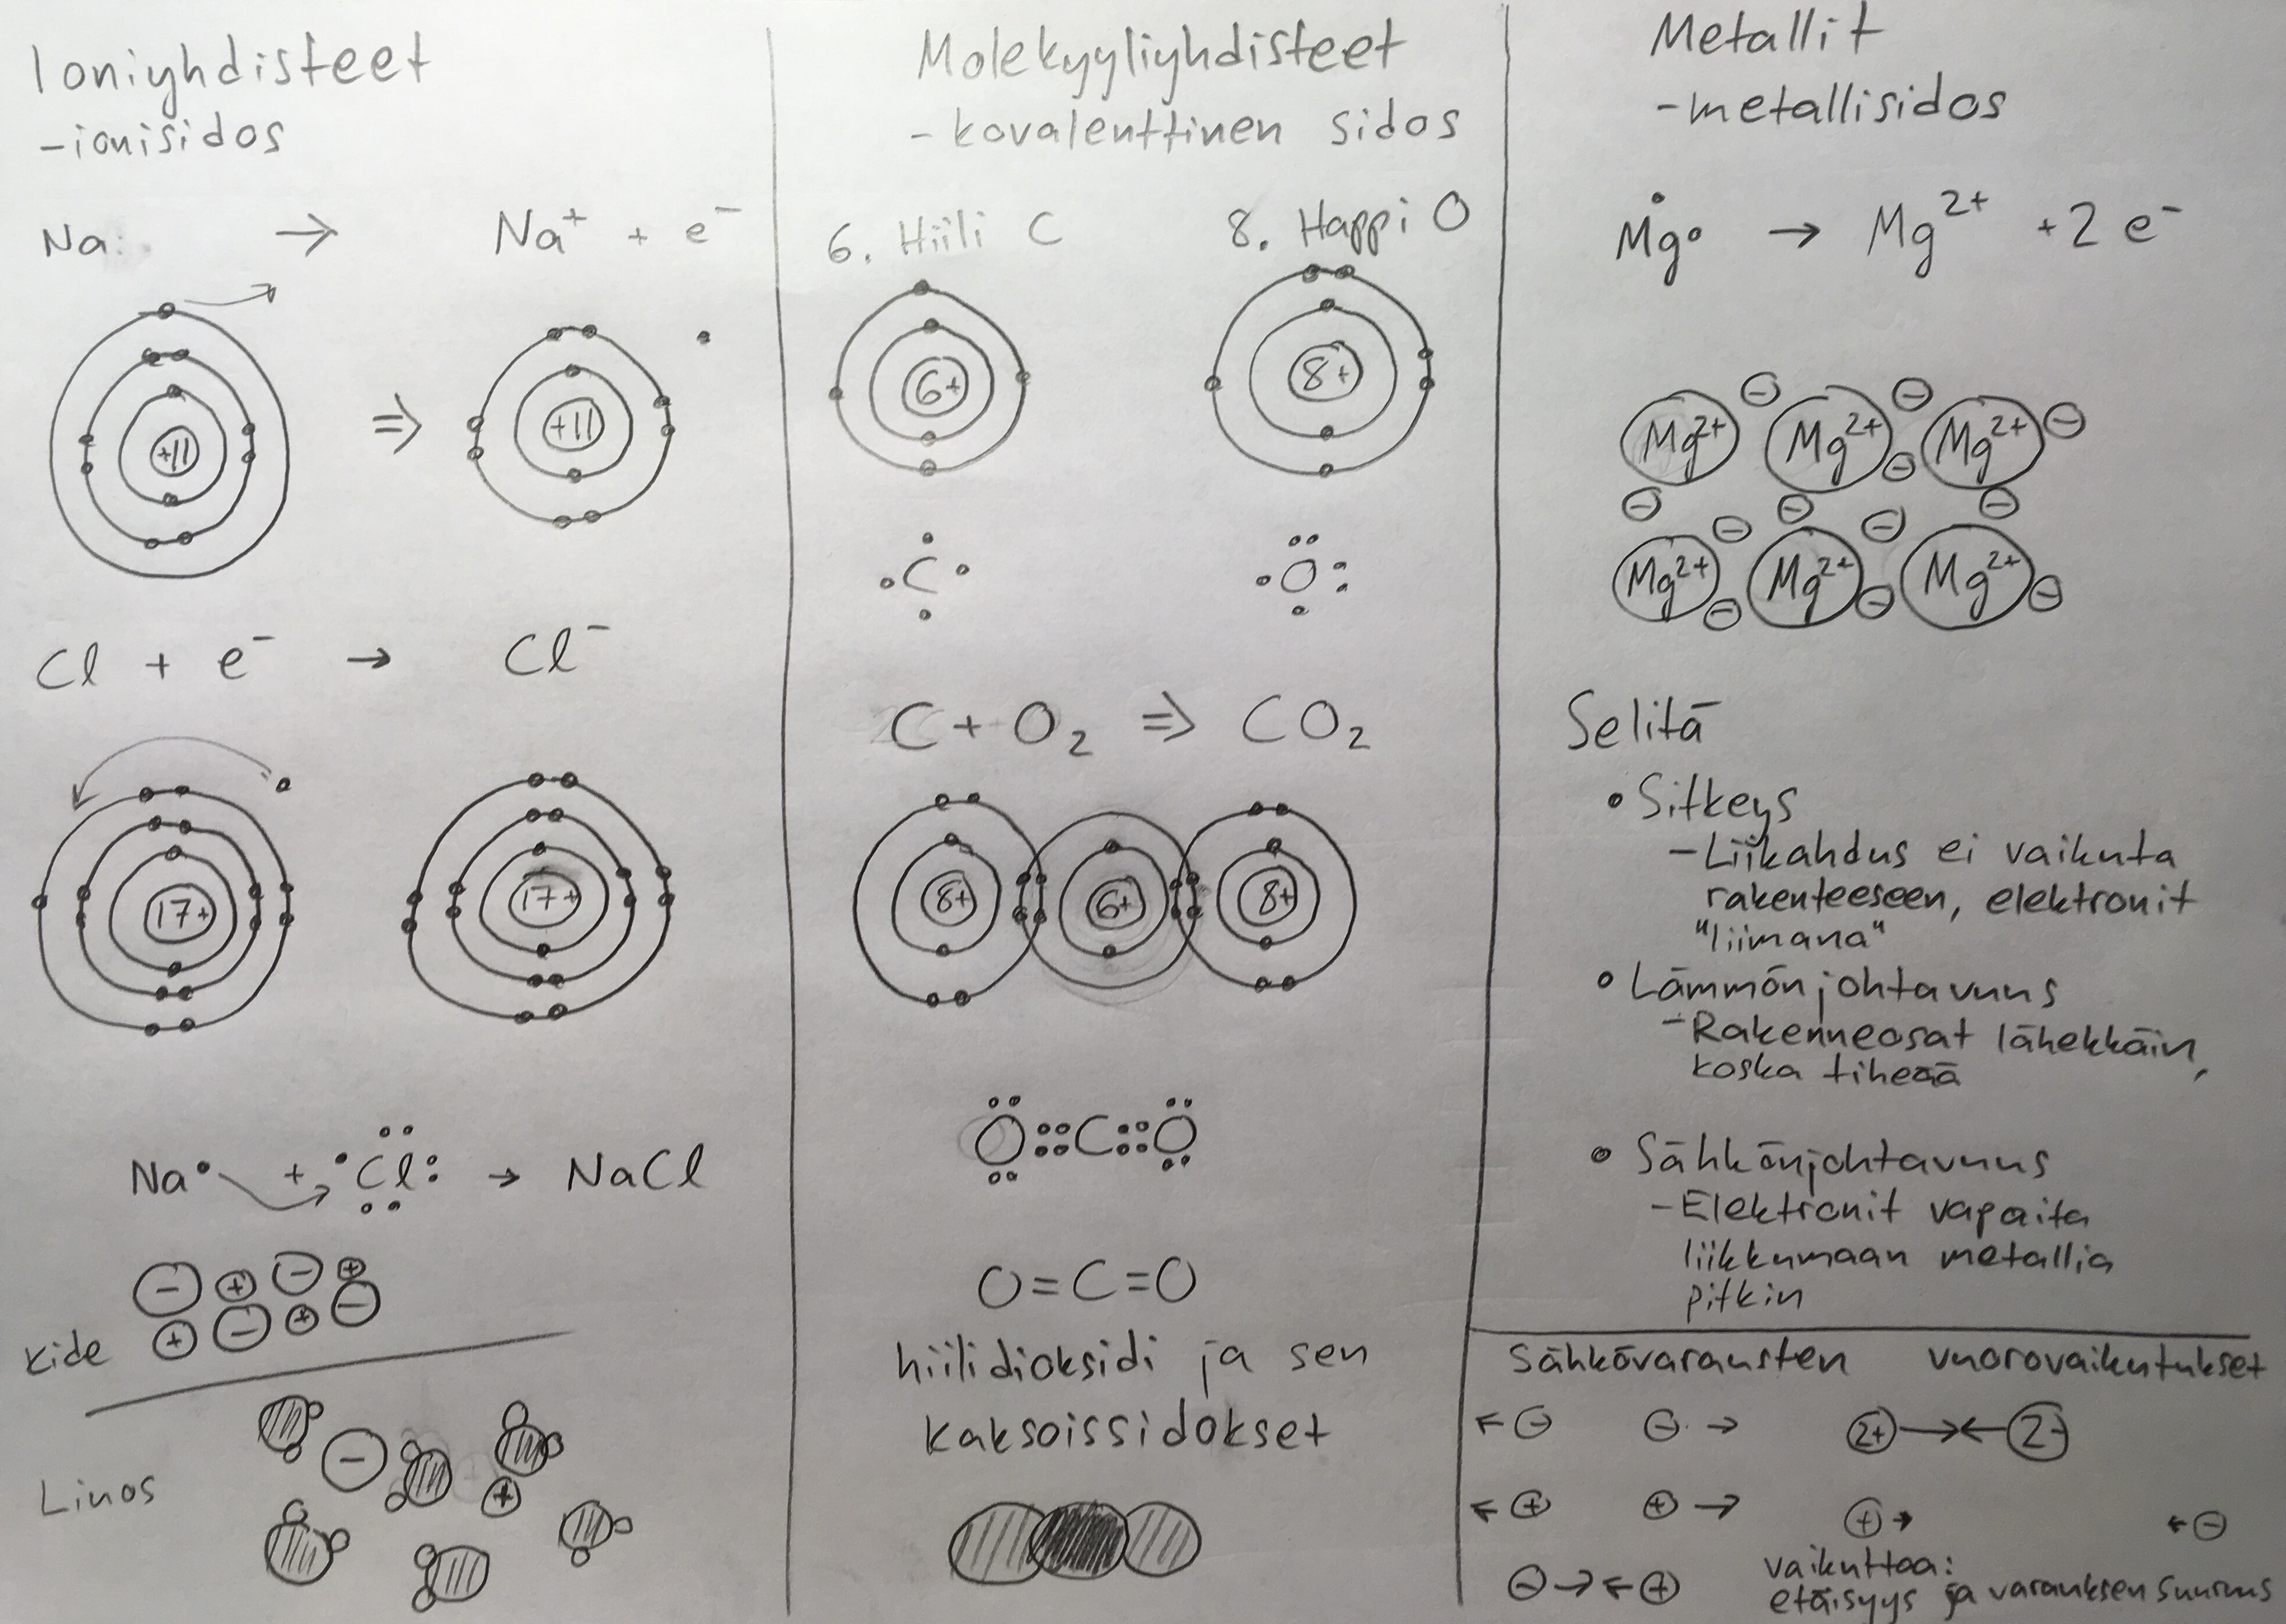 Ioniyhdisteet
-ionisidos
Na· → Na⁺ + e⁻
+11 ⇒ +11
Cl + e⁻ → Cl⁻
17+ 17+
Na• + •Cl: → NaCl
- + - +
+ - + -
Kide
Liuos
-
+
Molekyyliyhdisteet
-kovalenttinen sidos
6. Hiili C 8. Happi O
6+ 8+
C O
C + O₂ ⇒ CO₂
8+ 6+ 8+
O::C::O
O=C=O
hiilidioksidi ja sen
kaksoissidokset
Metallit
-metallisidos
Mg → Mg²⁺ + 2 e⁻
Mg²⁺ Mg²⁺ Mg²⁺
Mg²⁺ Mg²⁺ Mg²⁺
Selitä
• Sitkeys
-Liikahdus ei vaikuta
rakenteeseen, elektronit
"liimana"
• Lämmönjohtavuus
-Rakenneosat lähekkäin,
koska tiheää
• Sähkönjohtavuus
-Elektronit vapaita
liikkumaan metallia
pitkin
Sähkövarausten vuorovaikutukset
← - - → 2+ → ← 2-
← + + → + → ← -
- → ← +
vaikuttaa:
etäisyys ja varauksen suuruus